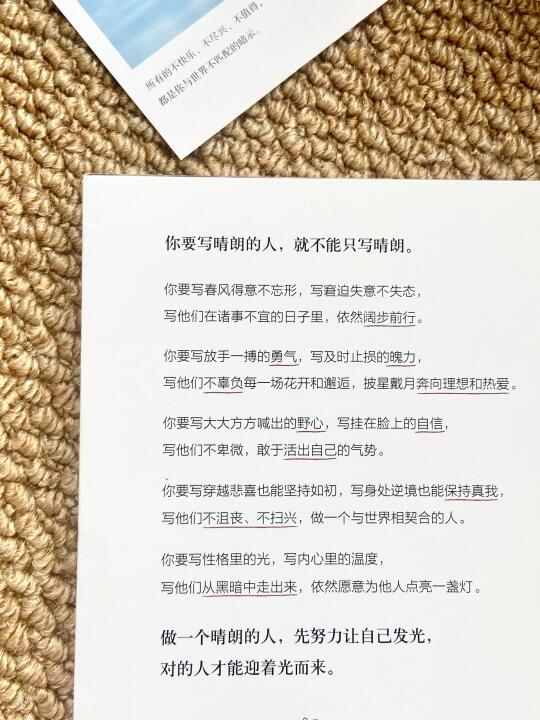 所有的不快乐、不尽兴、不值得，
都是你与世界不匹配的暗示。
你要写晴朗的人，就不能只写晴朗。
你要写春风得意不忘形，写窘迫失意不失态，
写他们在诸事不宜的日子里，依然阔步前行。
你要写放手一搏的勇气，写及时止损的魄力，
写他们不辜负每一场花开和邂逅，披星戴月奔向理想和热爱。
你要写大大方方喊出的野心，写挂在脸上的自信，
写他们不卑微，敢于活出自己的气势。
你要写穿越悲喜也能坚持如初，写身处逆境也能保持真我，
写他们不沮丧、不扫兴，做一个与世界相契合的人。
你要写性格里的光，写内心里的温度，
写他们从黑暗中走出来，依然愿意为他人点亮一盏灯。
做一个晴朗的人，先努力让自己发光，
对的人才能迎着光而来。